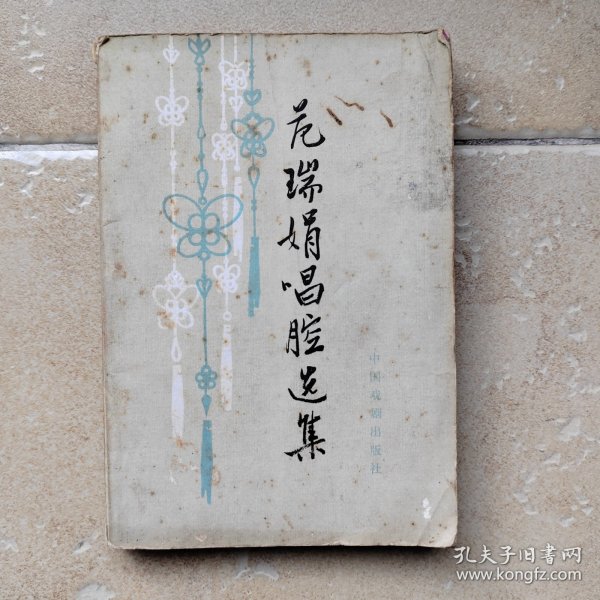 范瑞娟唱腔选集
中国戏剧出版社
孔夫子旧书网
www.kongfz.com